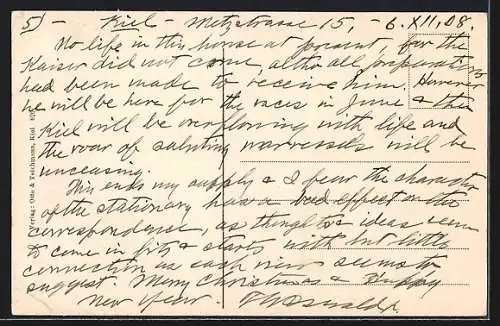 5) - Kiel - Metzstrasse 15, - 6.XII.08.
No life in this house at present, for the
Kaiser did not come altho all preparations
had been made to receive him. However
he will be here for the races in June & then
Kiel will be overflowing with life and
the roar of saluting warvessels will be
unceasing.
This ends my supply & I fear the character
of the stationary has a bad effect on the
correspondence, as though ideas seem
to come in fits & starts with but little
connection as each view seems to
suggest. Merry Christmas & Happy
New Year.
Verlag: Otto & Teichmann, Kiel